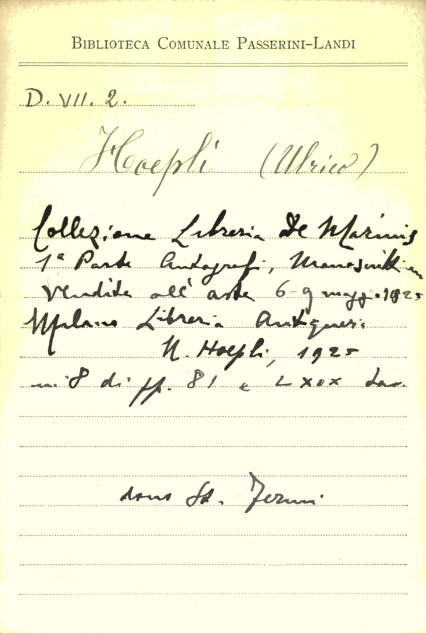 BIBLIOTECA COMUNALE PASSERINI-LANDI
D. VII. 2.
Hoepli (Ulrico)
Collezione Libreria De Marinis
1ª Parte Autografi, Manoscritti
Vendita all' asta 6-9 maggio 1925
Milano Libreria Antiquaria
U. Hoepli, 1925
in 8 di pp. 81 e tav.
dono